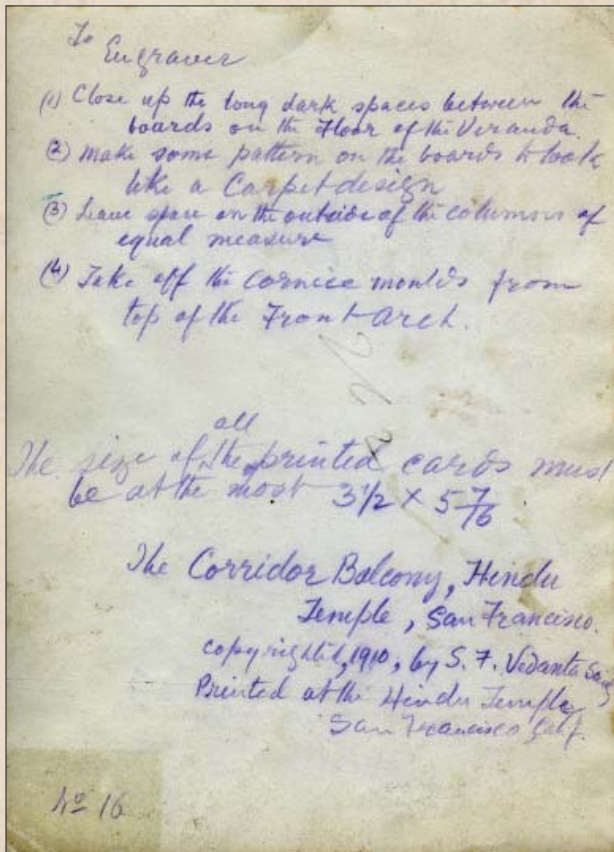 To
Engraver
(1) Close up the long dark spaces between the
boards on the Floor of the Veranda.
(2) make some pattern on the boards to look
like a Carpet design
(3) Leave space on the outside of the columns of
equal measure
(4) Take off the Cornice moulds from
top of the Front Arch.
all
The size of the printed cards must
be at the most 3 1/2 x 5 7/16
The Corridor Balcony, Hindu
Temple, San Francisco.
copyrighted, 1910, by S. F. Vedanta Socy
Printed at the Hindu Temple
San Francisco Calif.
No 16